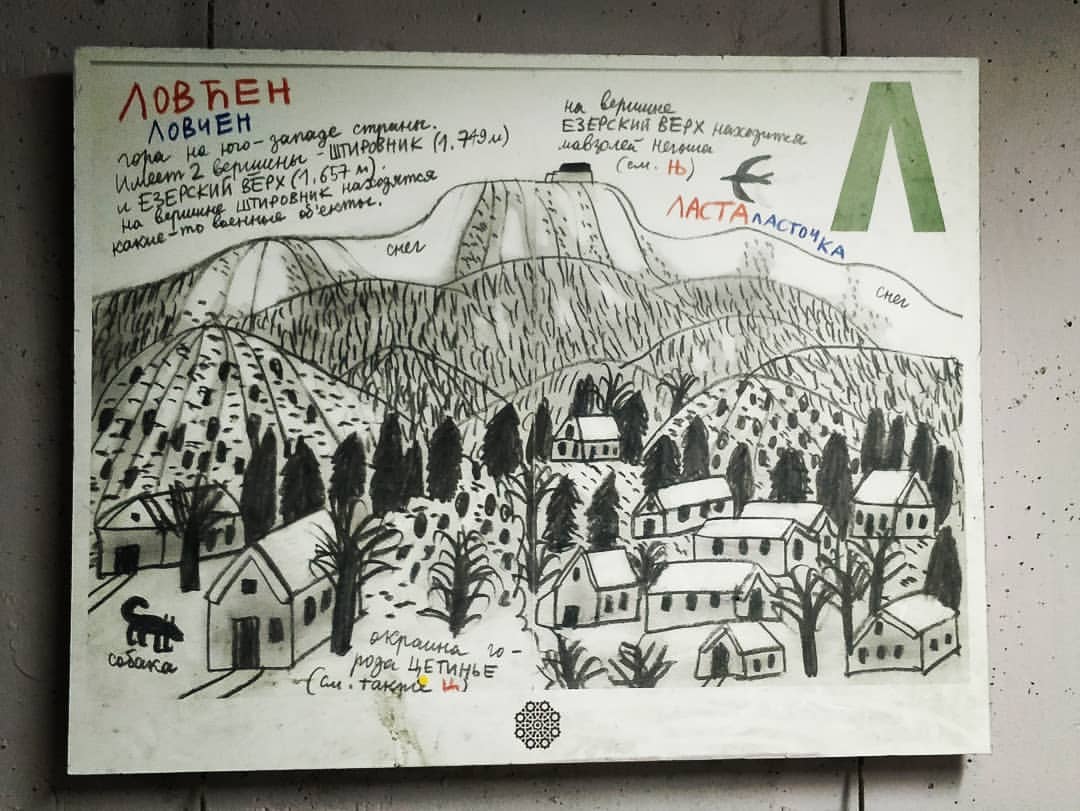 ЛОВЋЕН
ЛОВЧЕН
гора на юго-западе страны.
Имеет 2 вершины - ШТИРОВНИК (1.749м)
и ЕЗЕРСКИЙ ВЕРХ (1.657 м).
на вершине ШТИРОВНИК находятся
какие-то военные об'екты.
на вершине
ЕЗЕРСКИЙ ВЕРХ находится
мавзолей Негоша
(см. Њ)
Л
ЛАСТА ЛАСТОЧКА
снег
снег
собака
окраина го-
рода ЦЕТИНЬЕ
(см. также Њ)